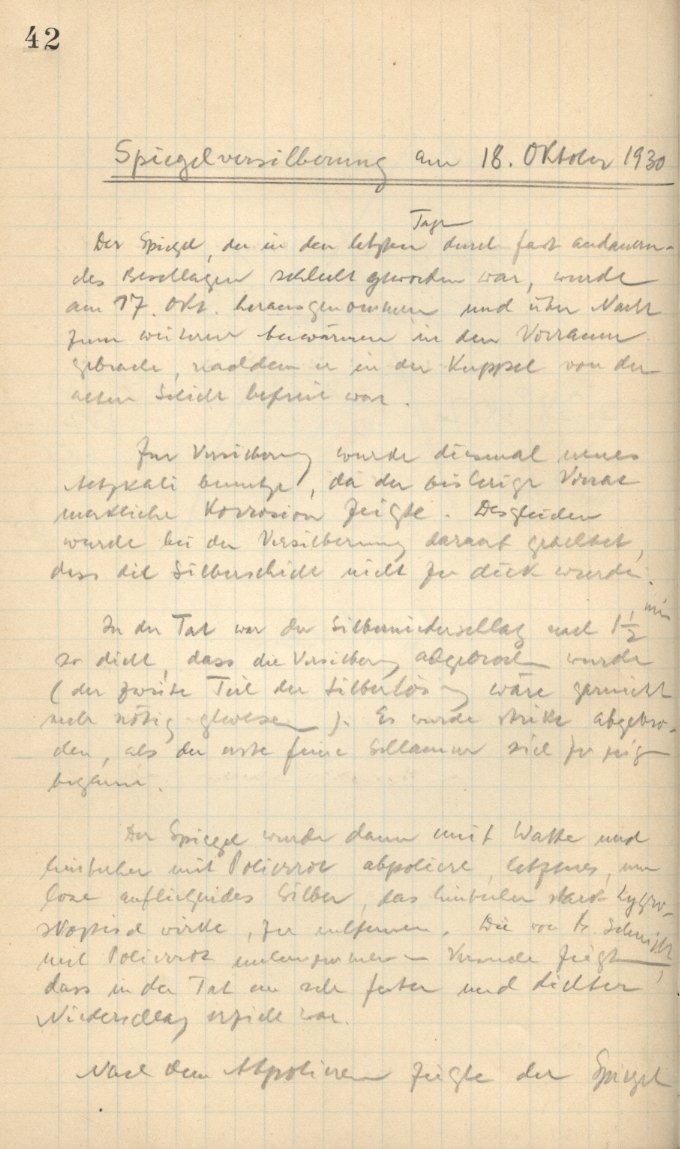 42
Spiegelversilberung am 18. Oktober 1930
Tagen
Der Spiegel, der in den letzten durch fast andauern-
des Beschlagen schlecht geworden war, wurde
am 17. Okt. herausgenommen und über Nacht
zum weiteren erwärmen in den Vorraum
gebracht, nachdem er in der Kuppel von der
alten Schicht befreit war.
Zur Versilberung wurde diesmal neues
Aetzkali benutzt, da der bisherige Vorrat
merkliche Korrosion zeigte. Desgleichen
wurde bei der Versilberung darauf geachtet,
dass die Silberschicht nicht zu dick wurde.
In der Tat war der Silberniederschlag nach 1 1/2 min
so dicht, dass die Versilberung abgebrochen wurde
(der zweite Teil der Silberlösung wäre garnicht
mehr nötig gewesen). Es wurde abgebro-
chen, als der erste feine Schlamm sich zu zeigen
begann.
Der Spiegel wurde dann mit Watte und
hinterher mit Polierrot abpoliert, letzteres, um
lose aufliegendes Silber, das hinterher stark hygro-
skopisch wirkt, zu entfernen. Die von B. Schmidt
mit Polierrot unternommenen Versuche zeigten,
dass in der Tat ein sehr fester und dichter
Niederschlag erzielt war.
Nach dem Abpolieren zeigte der Spiegel